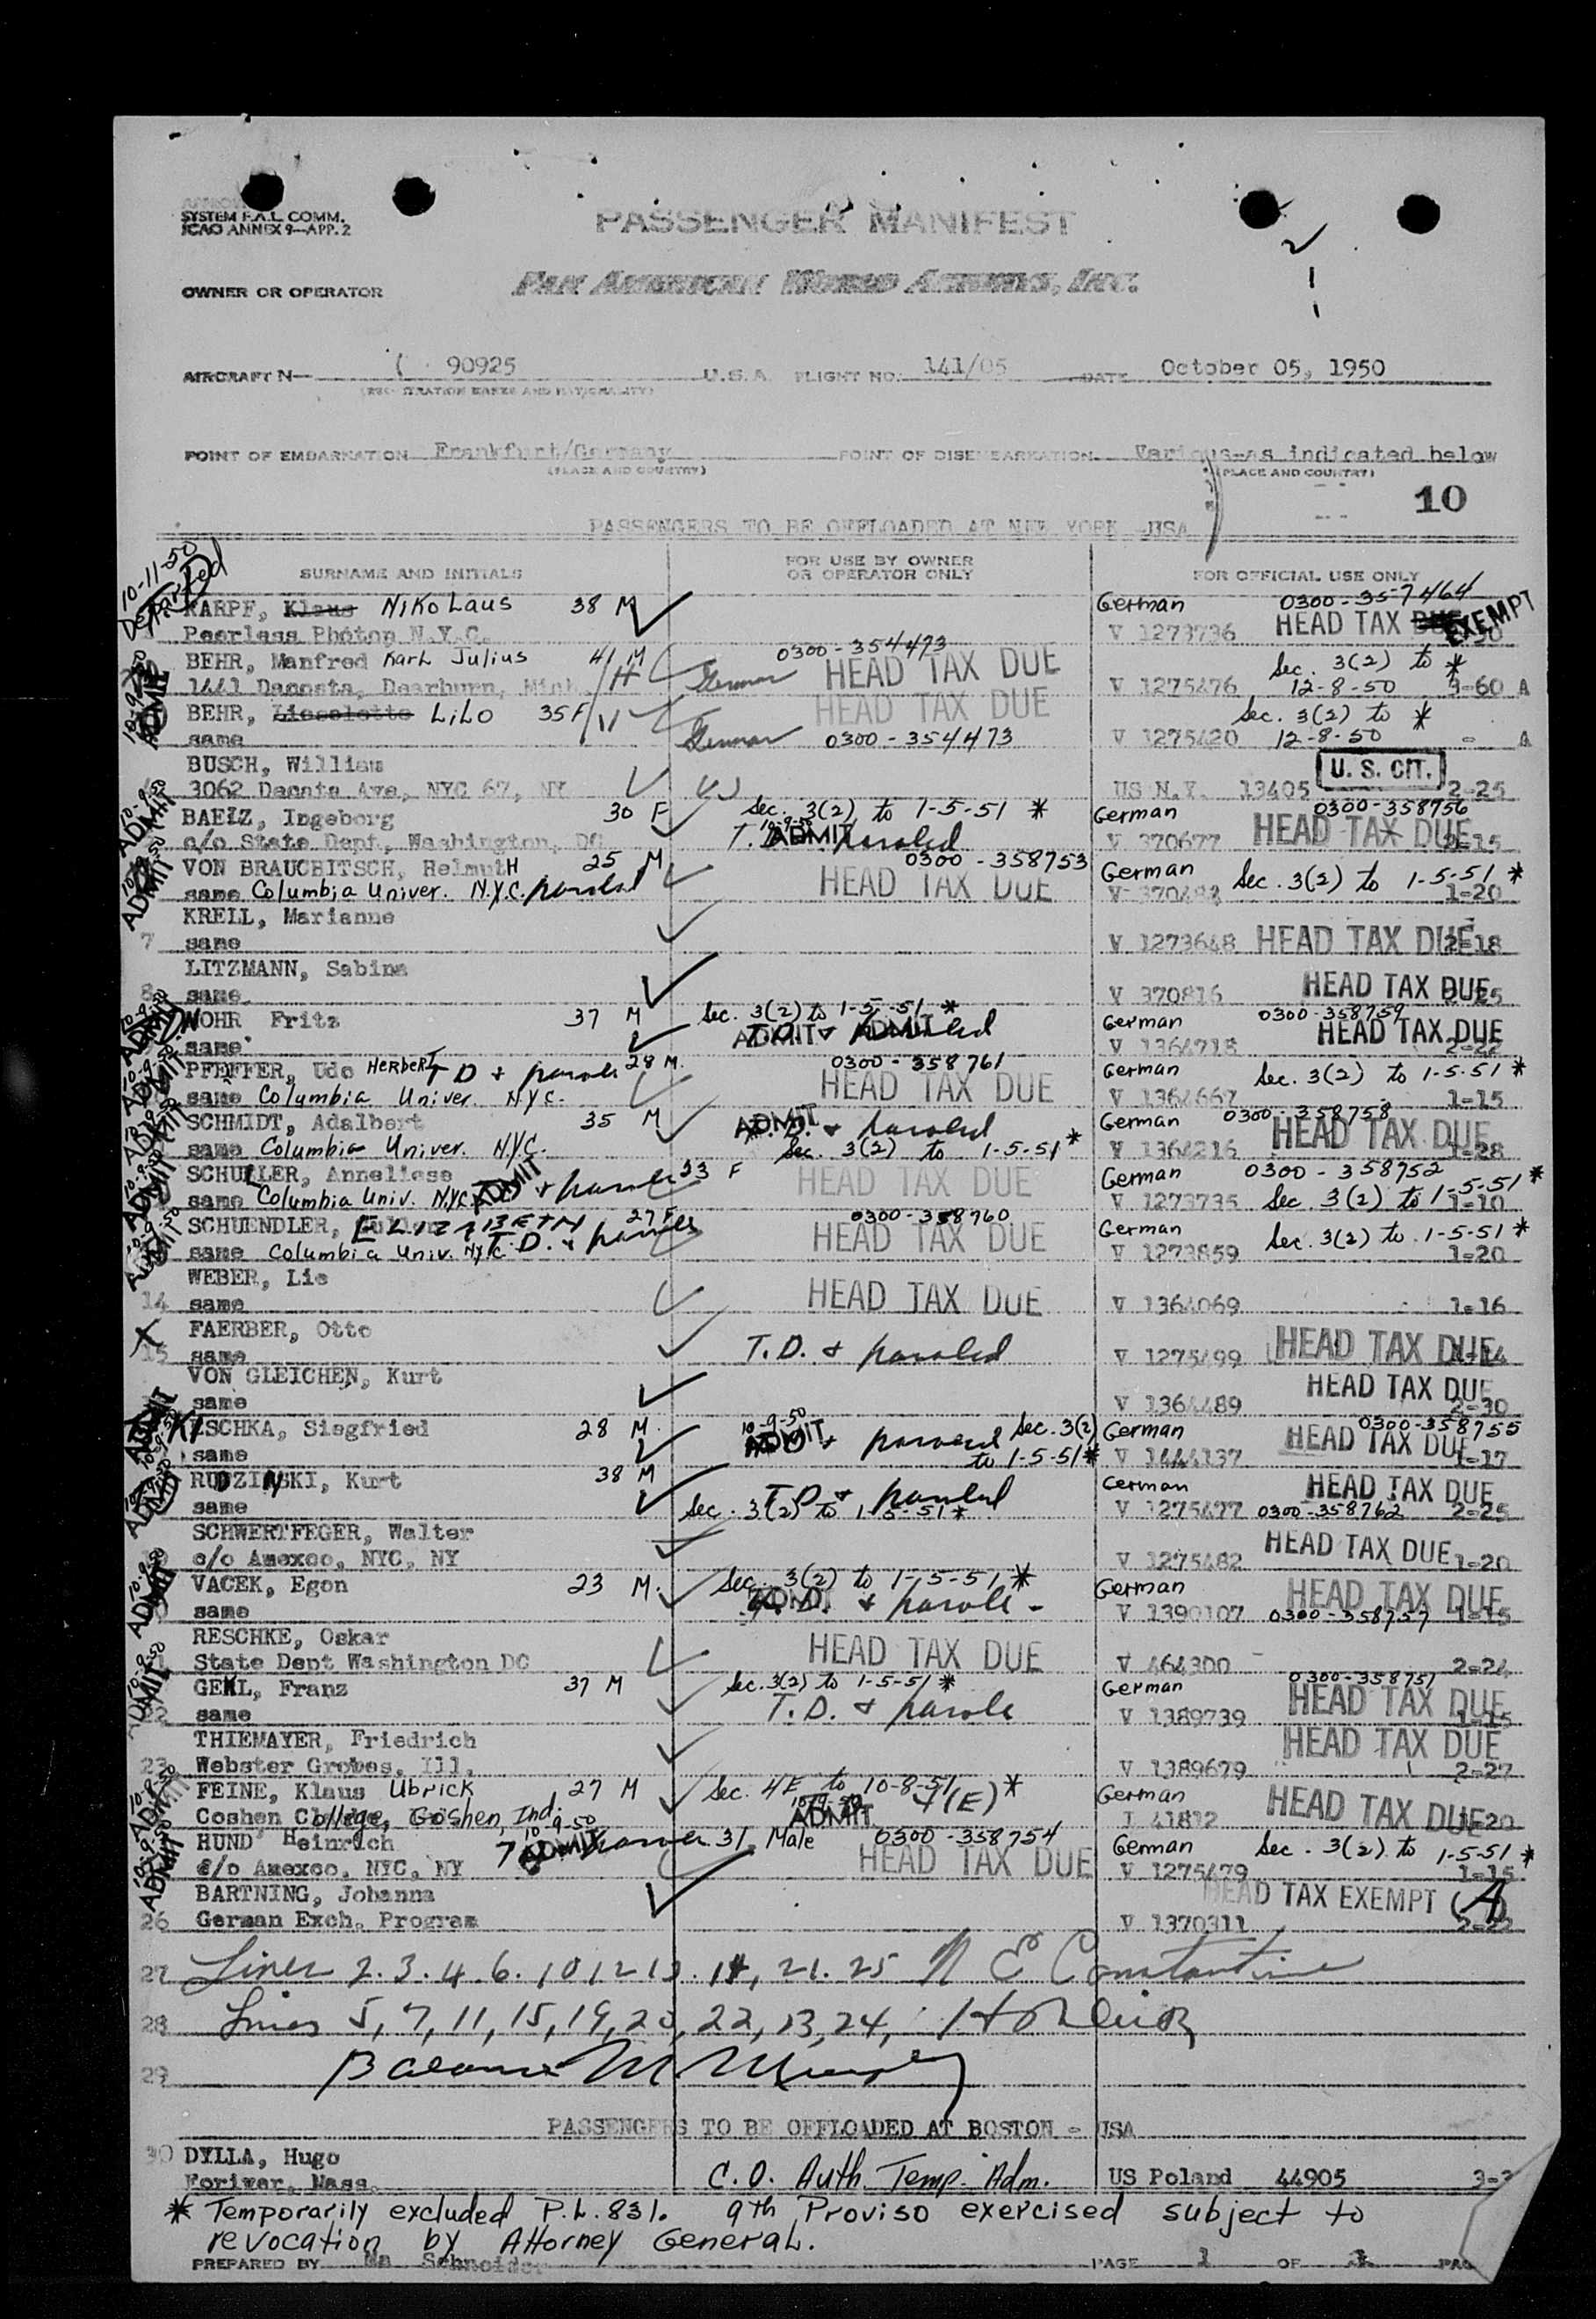 SYSTEM F.A.L. COMM.
ICAO ANNEX 9—APP. 2
PASSENGER MANIFEST
OWNER OR OPERATOR PAN AMERICAN WORLD AIRWAYS, INC.
AIRCRAFT N— 90925 U.S.A. FLIGHT NO. 141/05 DATE October 05, 1950
(REGISTRATION MARKS AND NATIONALITY)
POINT OF EMBARKATION Frankfurt/Germany POINT OF DISEMBARKATION Various-as indicated below
(PLACE AND COUNTRY) (PLACE AND COUNTRY)
10
PASSENGERS TO BE OFFLOADED AT NEW YORK -USA
10-11-50 Departed
SURNAME AND INITIALS FOR USE BY OWNER OR OPERATOR ONLY FOR OFFICIAL USE ONLY
KARPF, Klaus Nikolaus 38 M German 0300-357464
Peerless Photop N.Y.C. V 1273736 HEAD TAX DUE EXEMPT
BEHR, Manfred Karl Julius 41 M 0300-354473 Sec. 3(2) to *
1441 Dacosta, Dearburn, German HEAD TAX DUE V 1275476 12-8-50 A
BEHR, Lieselotte LiLo 35 F HEAD TAX DUE Sec. 3(2) to *
same German 0300-354473 V 1275420 12-8-50 A
BUSCH, William U. S. CIT.
3062 Decota Ave, NYC 67, NY US N.Y. 13405 2-25
BAELZ, Ingeborg 30 F Sec. 3(2) to 1-5-51 * German 0300-358756
c/o State Dept, Washington, DC 10-9-50 ADMIT paroled V 370677 HEAD TAX DUE
VON BRAUCHITSCH, HelmutH 25 M 0300-358753 German Sec. 3(2) to 1-5-51 *
same Columbia Univer. N.Y.C. paroled HEAD TAX DUE 1-20
KRELL, Marianne
7 same V 1273648 HEAD TAX DUE 2-18
LITZMANN, Sabine
8 same V 370816 HEAD TAX DUE
WOHR Fritz 37 M Sec. 3(2) to 1-5-51 * German 0300-358759
same ADMIT T.D. + paroled V 1364718 HEAD TAX DUE
PFEFFER, Udo Herbert T D + parole 28 M. 0300-358761 German Sec. 3(2) to 1-5-51 *
same Columbia Univer. N.Y.C. HEAD TAX DUE V 1364667 1-15
SCHMIDT, Adalbert 35 M ADMIT T.D. + paroled German 0300-358758
same Columbia Univer. N.Y.C. Sec. 3(2) to 1-5-51 * V 1364216 HEAD TAX DUE 1-28
SCHULLER, Anneliese 33 F HEAD TAX DUE German 0300-358752
same Columbia Univ. N.Y.C. ADMIT + parole V 1273735 Sec. 3(2) to 1-5-51 * 1-10
SCHUENDLER, ELIZABETH 27 F 0300-358760 German Sec. 3(2) to 1-5-51 *
same Columbia Univ. NYC T.D. + parole HEAD TAX DUE V 1273859 1-20
WEBER, Lie HEAD TAX DUE
14 same V 1364069 1-16
FAERBER, Otto
15 same T.D. + paroled V 1275499 HEAD TAX DUE
VON GLEICHEN, Kurt HEAD TAX DUE
same V 1364489 2-30
KISCHKA, Siegfried 28 M. 10-9-50 ADMIT + paroled Sec. 3(2) German 0300-358755
same to 1-5-51 * V 1444137 HEAD TAX DUE 1-17
RUDZINSKI, Kurt 38 M T.D. + paroled German HEAD TAX DUE
same Sec. 3(2) to 1-5-51 * V 1275477 0300-358762 2-25
SCHWERTFEGER, Walter
c/o Amexco, NYC, NY V 1275482 HEAD TAX DUE 1-20
VACEK, Egon 23 M. Sec. 3(2) to 1-5-51 * German HEAD TAX DUE
same ADMIT T.D. + parole - V 1390107 0300-358757 1-15
RESCHKE, Oskar HEAD TAX DUE
State Dept Washington DC V 464300 2-24
GEHL, Franz 37 M Sec. 3(2) to 1-5-51 * German 0300-358751
22 same T.D. + parole V 1389739 HEAD TAX DUE 1-15
THIEMAYER, Friedrich HEAD TAX DUE
23 Webster Groves, Ill. V 1389679 2-27
FEINE, Klaus Ubrick 27 M Sec. 4E to 10-8-51 * German
Coshen College, Goshen, Ind. 10-9-50 ADMIT 4(E) I 41812 HEAD TAX DUE 1-20
HUND Heinrich 10-9-50 ADMIT parole 31 Male 0300-358754 German Sec. 3(2) to 1-5-51 *
c/o Amexco, NYC, NY HEAD TAX DUE V 1275479 1-15
BARTNING, Johanna HEAD TAX EXEMPT (A)
26 German Exch. Program V 1370311 2-22
27 Lines 2. 3. 4. 6. 10, 12, 13. 14, 21. 25 N E Constantine
28 Lines 5, 7, 11, 15, 19, 20, 22, 23, 24,
29 Balance
PASSENGERS TO BE OFFLOADED AT BOSTON - USA
30 DYLLA, Hugo
Mass. C.O. Auth. Temp. Adm. US Poland 44905
* Temporarily excluded P.L. 831. 9th Proviso exercised subject to
revocation by Attorney General.
PREPARED BY Schneider PAGE 1 OF